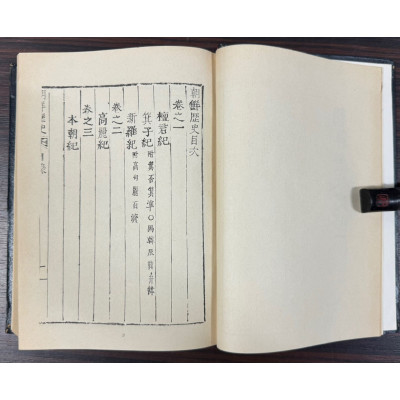 朝鮮歷史目次
卷之一
檀君紀
箕子紀
新羅紀 附高句麗百濟
卷之二
高麗紀
卷之三
本朝紀